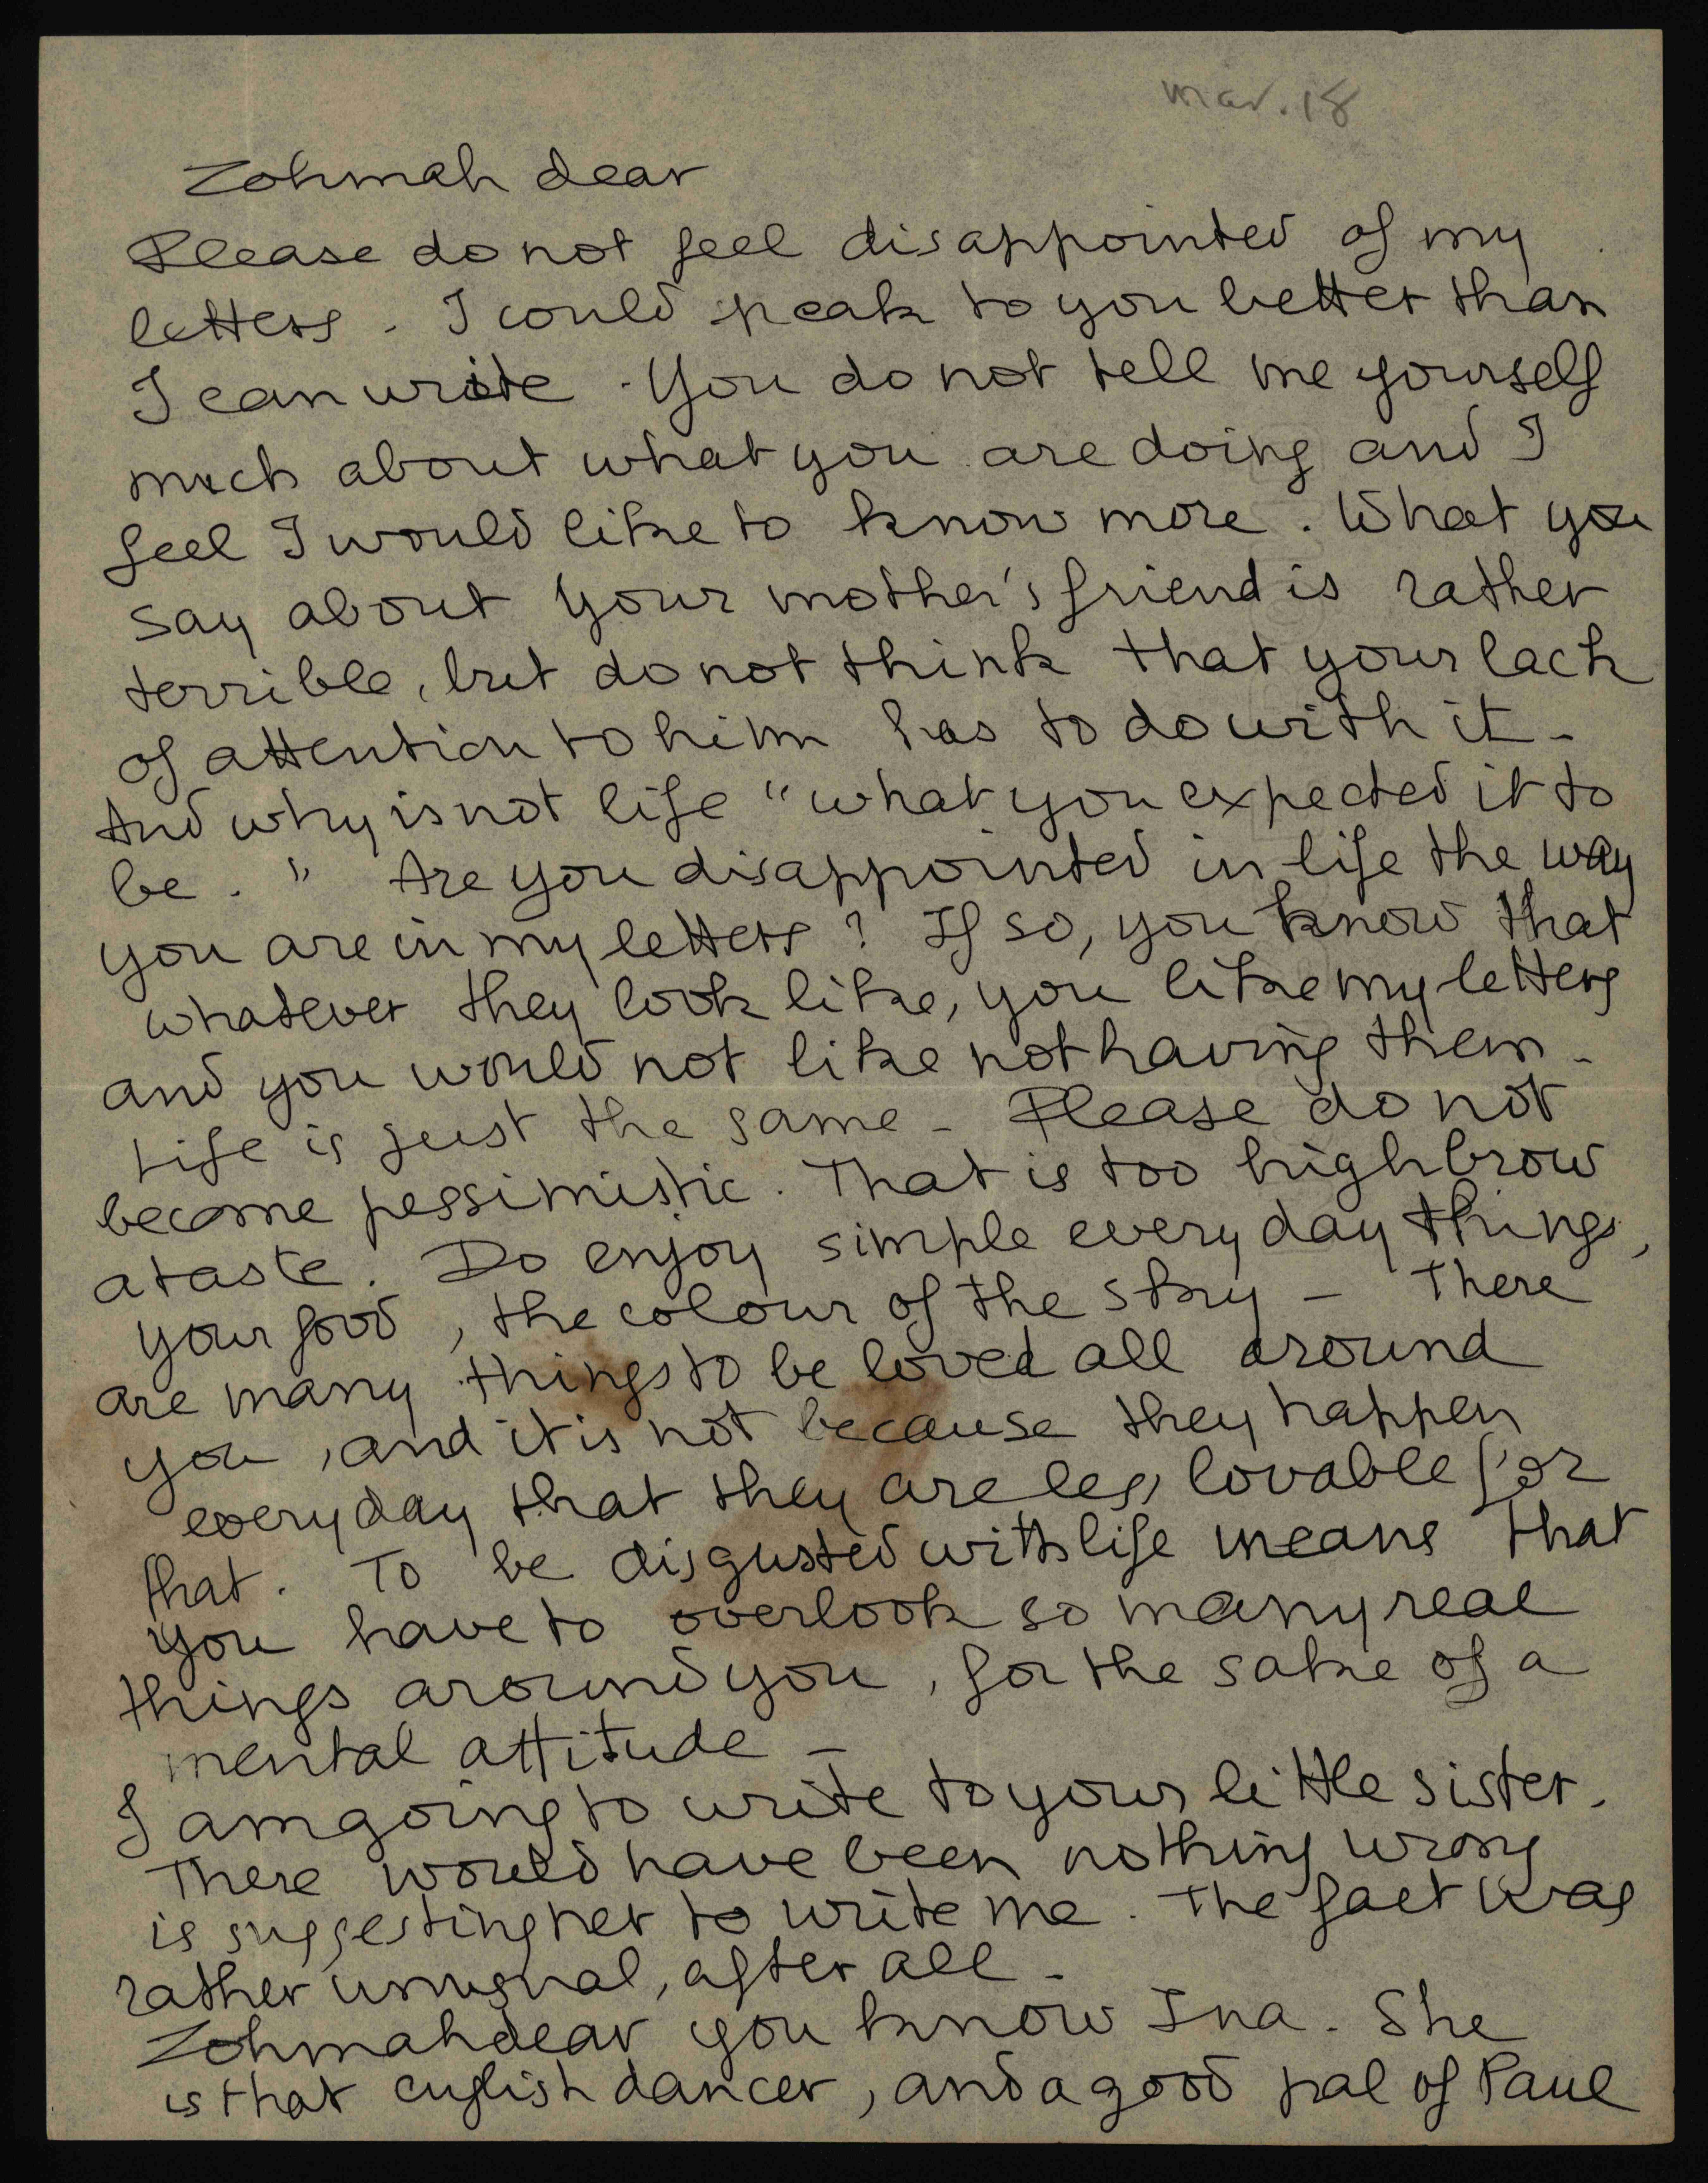 Mar. 18
Zohmah dear
Please do not feel disappointed of my
letters. I could speak to you better than
I can write. You do not tell me yourself
much about what you are doing and I
feel I would like to know more. What you
say about your mother's friend is rather
terrible, but do not think that your lack
of attention to him has to do with it -
And why is not life "what you expected it to
be." Are you disappointed in life the way
you are in my letters? If so, you know that
whatever they look like, you like my letters
and you would not like not having them -
Life is just the same - Please do not
become pessimistic. That is too highbrow
a taste. Do enjoy simple every day things,
your food, the colour of the sky - There
are many things to be loved all around
you, and it is not because they happen
everyday that they are less lovable for
that. To be disgusted with life means that
you have to overlook so many real
things around you, for the sake of a
mental attitude -
I am going to write to your little sister.
There would have been nothing wrong
is suggesting her to write me. The fact was
rather unusual, after all -
Zohmah dear you know Ina. She
is that english dancer, and a good pal of Paul